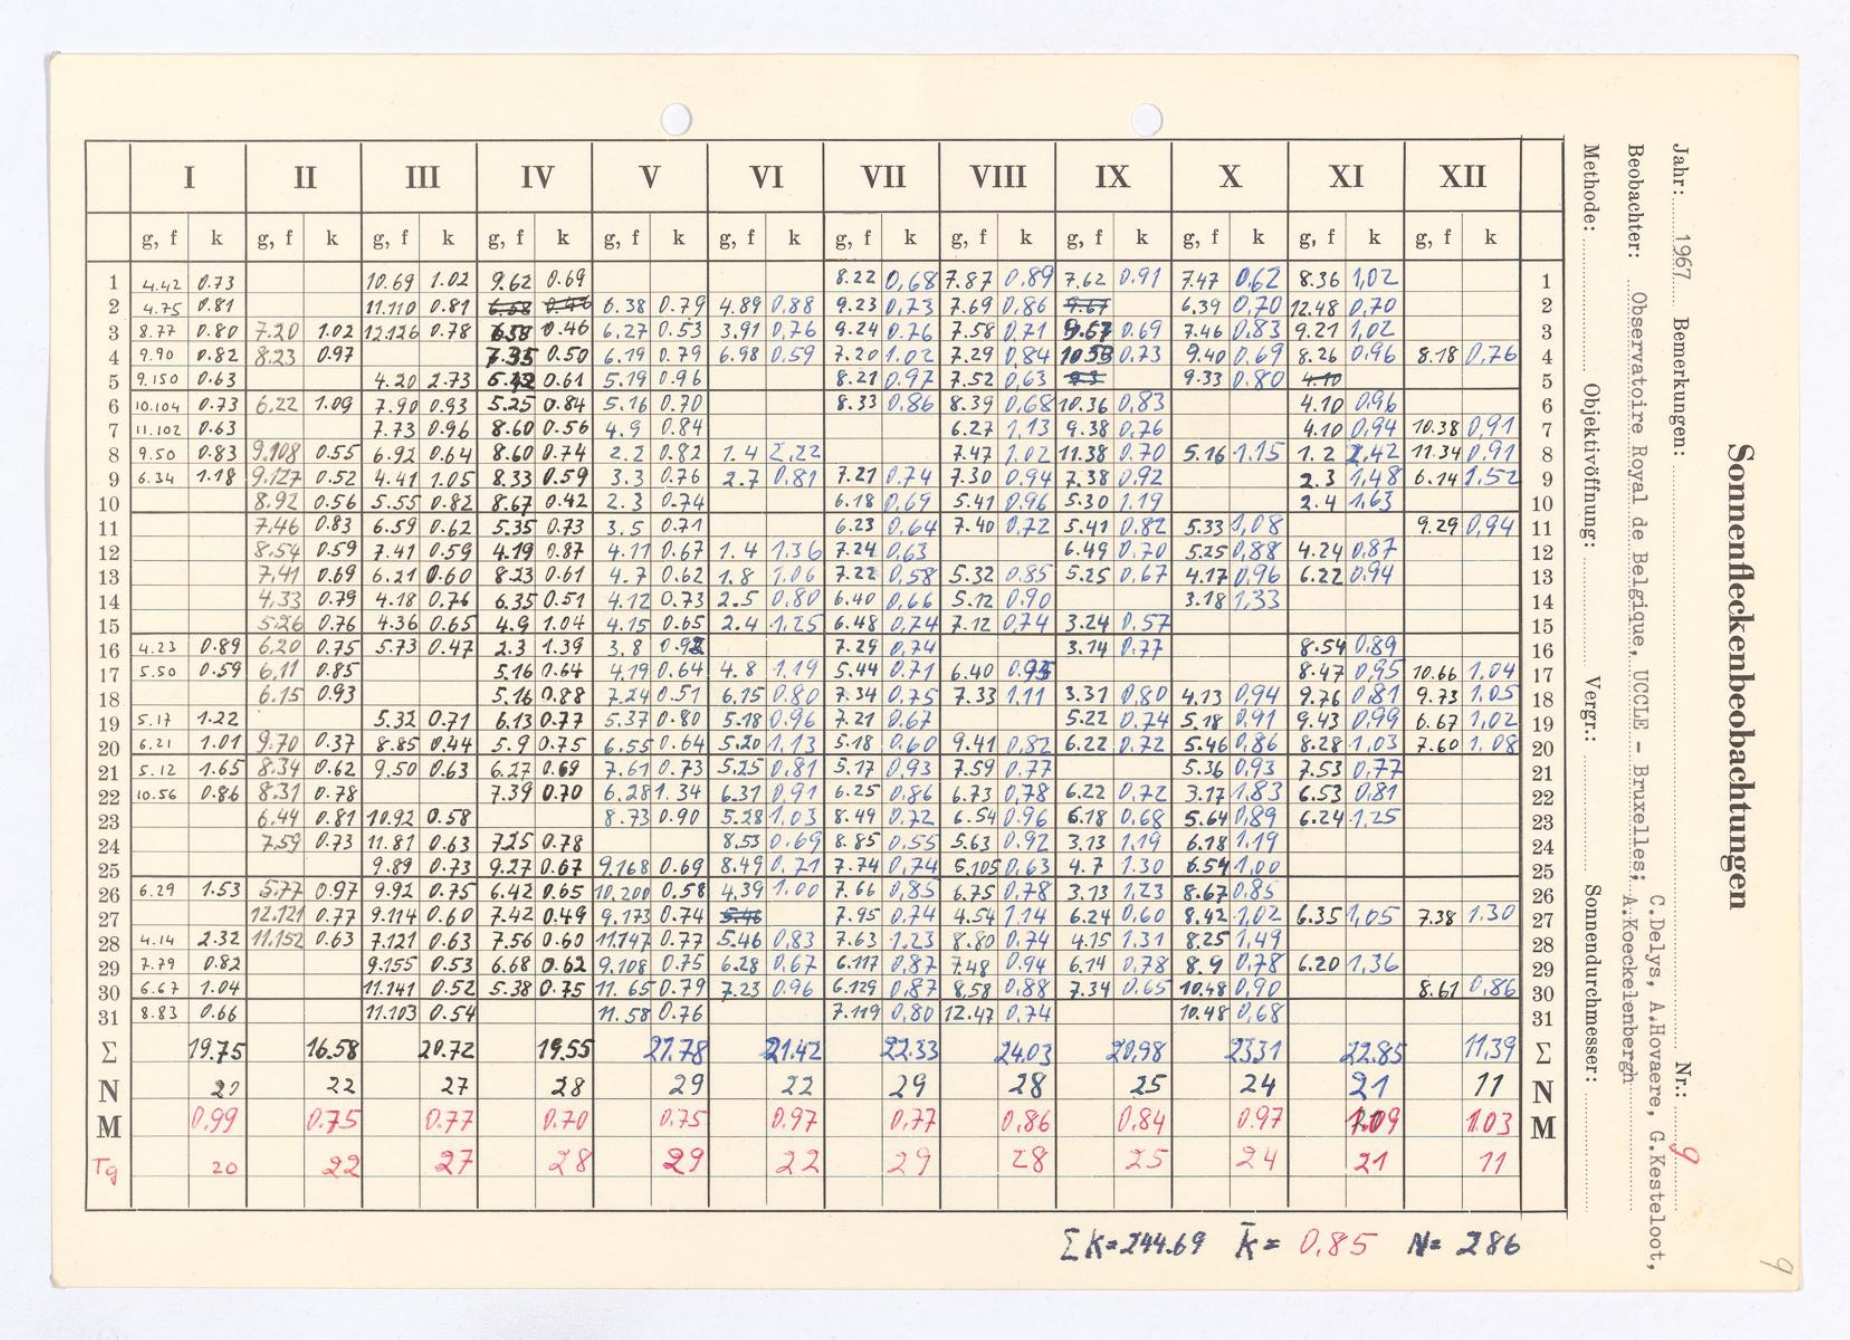 I II III IV V VI VII VIII IX X XI XII
g, f k g, f k g, f k g, f k g, f k g, f k g, f k g, f k g, f k g, f k g, f k g, f k
1 4.42 0.73 10.69 1.02 9.62 0.69 8.22 0,68 7.87 0,89 7,62 0,91 7.47 0,62 8.36 1,02 1
2 4.75 0.81 11.110 0.81 6.38 0.79 4.89 0,88 9.23 0,73 7.69 0,86 9.67 6.39 0,70 12.48 0,70 2
3 8.77 0.80 7.20 1.02 12.126 0.78 6.58 0.46 6.27 0.53 3.91 0,76 9.24 0.76 7.58 0,71 9.67 0.69 7.46 0,83 9.21 1,02 3
4 9.90 0.82 8.23 0.97 7.35 0.50 6.19 0.79 6.98 0,59 7.20 1.02 7.29 0,84 10.58 0,73 9.40 0,69 8.26 0,96 8.18 0,76 4
5 9.150 0.63 4.20 2.73 6.42 0.61 5.19 0.96 8.21 0.97 7.52 0,63 9.33 0.80 4.10 5
6 10.104 0.73 6.22 1.09 7.90 0.93 5.25 0.84 5.16 0.70 8.33 0,86 8.39 0,68 10.36 0,83 4.10 0,96 6
7 11.102 0.63 7.73 0.96 8.60 0.56 4.9 0.84 6.27 1,13 9.38 0,76 4.10 0,94 10.38 0,91 7
8 9.50 0.83 9.108 0.55 6.92 0.64 8.60 0.74 2.2 0.82 1.4 2,22 7.47 1.02 11.38 0,70 5.16 1.15 1.2 2,42 11.34 0,91 8
9 6.34 1.18 9.127 0.52 4.41 1.05 8.33 0.59 3.3 0.76 2.7 0,81 7.21 0,74 7.30 0,94 7.38 0,92 2.3 1,48 6.14 1,52 9
10 8.92 0.56 5.55 0.82 8.67 0.42 2.3 0.74 6.18 0,69 5.41 0,96 5.30 1.19 2.4 1,63 10
11 7.46 0.83 6.59 0.62 5.35 0.73 3.5 0.71 6.23 0,64 7.40 0,72 5.41 0,82 5.33 1,08 9.29 0,94 11
12 8.54 0.59 7.41 0.59 4.19 0.87 4.11 0.67 1.4 1,36 7.24 0,63 6.49 0,70 5.25 0,88 4.24 0,87 12
13 7.41 0.69 6.21 0.60 8.23 0.61 4.7 0.62 1.8 1.06 7.22 0,58 5.32 0.85 5.25 0,67 4.17 0,96 6.22 0,94 13
14 4.33 0.79 4.18 0.76 6.35 0.51 4.12 0.73 2.5 0,80 6.40 0,66 5.12 0.90 3.18 1,33 14
15 5.26 0.76 4.36 0.65 4.9 1.04 4.15 0.65 2.4 1,25 6.48 0,74 7.12 0,74 3.24 0.57 15
16 4.23 0.89 6.20 0.75 5.73 0.47 2.3 1.39 3.8 0.92 7.29 0,74 3.14 0,77 8.54 0,89 16
17 5.50 0.59 6.11 0.85 5.16 0.64 4.19 0.64 4.8 1.19 5.44 0.71 6.40 8.47 0,95 10.66 1.04 17
18 6.15 0.93 5.16 0.88 7.24 0.51 6.15 0,80 7.34 0,75 7.33 1,11 3.31 0,80 4.13 0,94 9.76 0,81 9.73 1.05 18
19 5.17 1.22 5.32 0.71 6.13 0.77 5.37 0.80 5.18 0,96 7.21 0.67 5.22 0,74 5.18 0,91 9.43 0,99 6.67 1,02 19
20 6.21 1.01 9.70 0.37 8.85 0.44 5.9 0.75 6.55 0.64 5.20 1,13 5.18 0.60 9.41 0,82 6.22 0,72 5.46 0,86 8.28 1,03 7.60 1,08 20
21 5.12 1.65 8.34 0.62 9.50 0.63 6.27 0.69 7.61 0.73 5.25 0,81 5.17 0,93 7.59 0.77 5.36 0,93 7.53 0,77 21
22 10.56 0.86 8.31 0.78 7.39 0.70 6.28 1.34 6.31 0,91 6.25 0,86 6.73 0,78 6.22 0,72 3.17 1,83 6.53 0,81 22
23 6.44 0.81 10.92 0.58 8.73 0.90 5.28 1,03 8.49 0,72 6.54 0.96 6.18 0,68 5.64 0,89 6.24 1,25 23
24 7.59 0.73 11.81 0.63 7.25 0.78 8.53 0,69 8.85 0,55 5.63 0,92 3.13 1,19 6.18 1.19 24
25 9.89 0.73 9.27 0.67 9.168 0.69 8.49 0,71 7.74 0,74 5.105 0,63 4.7 1.30 6.54 1.00 25
26 6.29 1.53 5.77 0.97 9.92 0.75 6.42 0.65 10.200 0.58 4.39 1.00 7.66 0,85 6.75 0,78 3.13 1,23 8.67 0.85 26
27 12.121 0.77 9.114 0.60 7.42 0.49 9.173 0.74 5.46 7.95 0,74 4.54 1.14 6.24 0,60 8.42 1,02 6.35 1,05 7.38 1.30 27
28 4.14 2.32 11.152 0.63 7.121 0.63 7.56 0.60 11.147 0.77 5.46 0,83 7.63 1.23 8.80 0.74 4.15 1.31 8.25 1,49 28
29 7.79 0.82 9.155 0.53 6.68 0.62 9.108 0.75 6.28 0,67 6.117 0,87 7.48 0.94 6.14 0,78 8.9 0,78 6.20 1,36 29
30 6.67 1.04 11.141 0.52 5.38 0.75 11.65 0.79 7.23 0,96 6.129 0,87 8.58 0.88 7.34 0.65 10.48 0,90 8.61 0,86 30
31 8.83 0.66 11.103 0.54 11.58 0.76 7.119 0,80 12.47 0,74 10.48 0,68 31
Σ 19.75 16.58 20.72 19.55 21.78 21.42 22.33 24.03 20,98 23.31 22.85 11,39 Σ
N 20 22 27 28 29 22 29 28 25 24 21 11 N
M 0,99 0.75 0.77 0.70 0,75 0,97 0,77 0,86 0,84 0.97 1.09 1.03 M
Tg 20 22 27 28 29 22 29 28 25 24 21 11
Σk=244.69 k̄= 0,85 N= 286
Sonnenfleckenbeobachtungen
Jahr: 1967 Bemerkungen: Nr.: 9
Beobachter: Observatoire Royal de Belgique, UCCLE - Bruxelles; C.Delys, A.Hovaere, G.Kesteloot,
A.Koeckelenbergh
Methode: Objektivöffnung: Vergr.: Sonnendurchmesser:
9